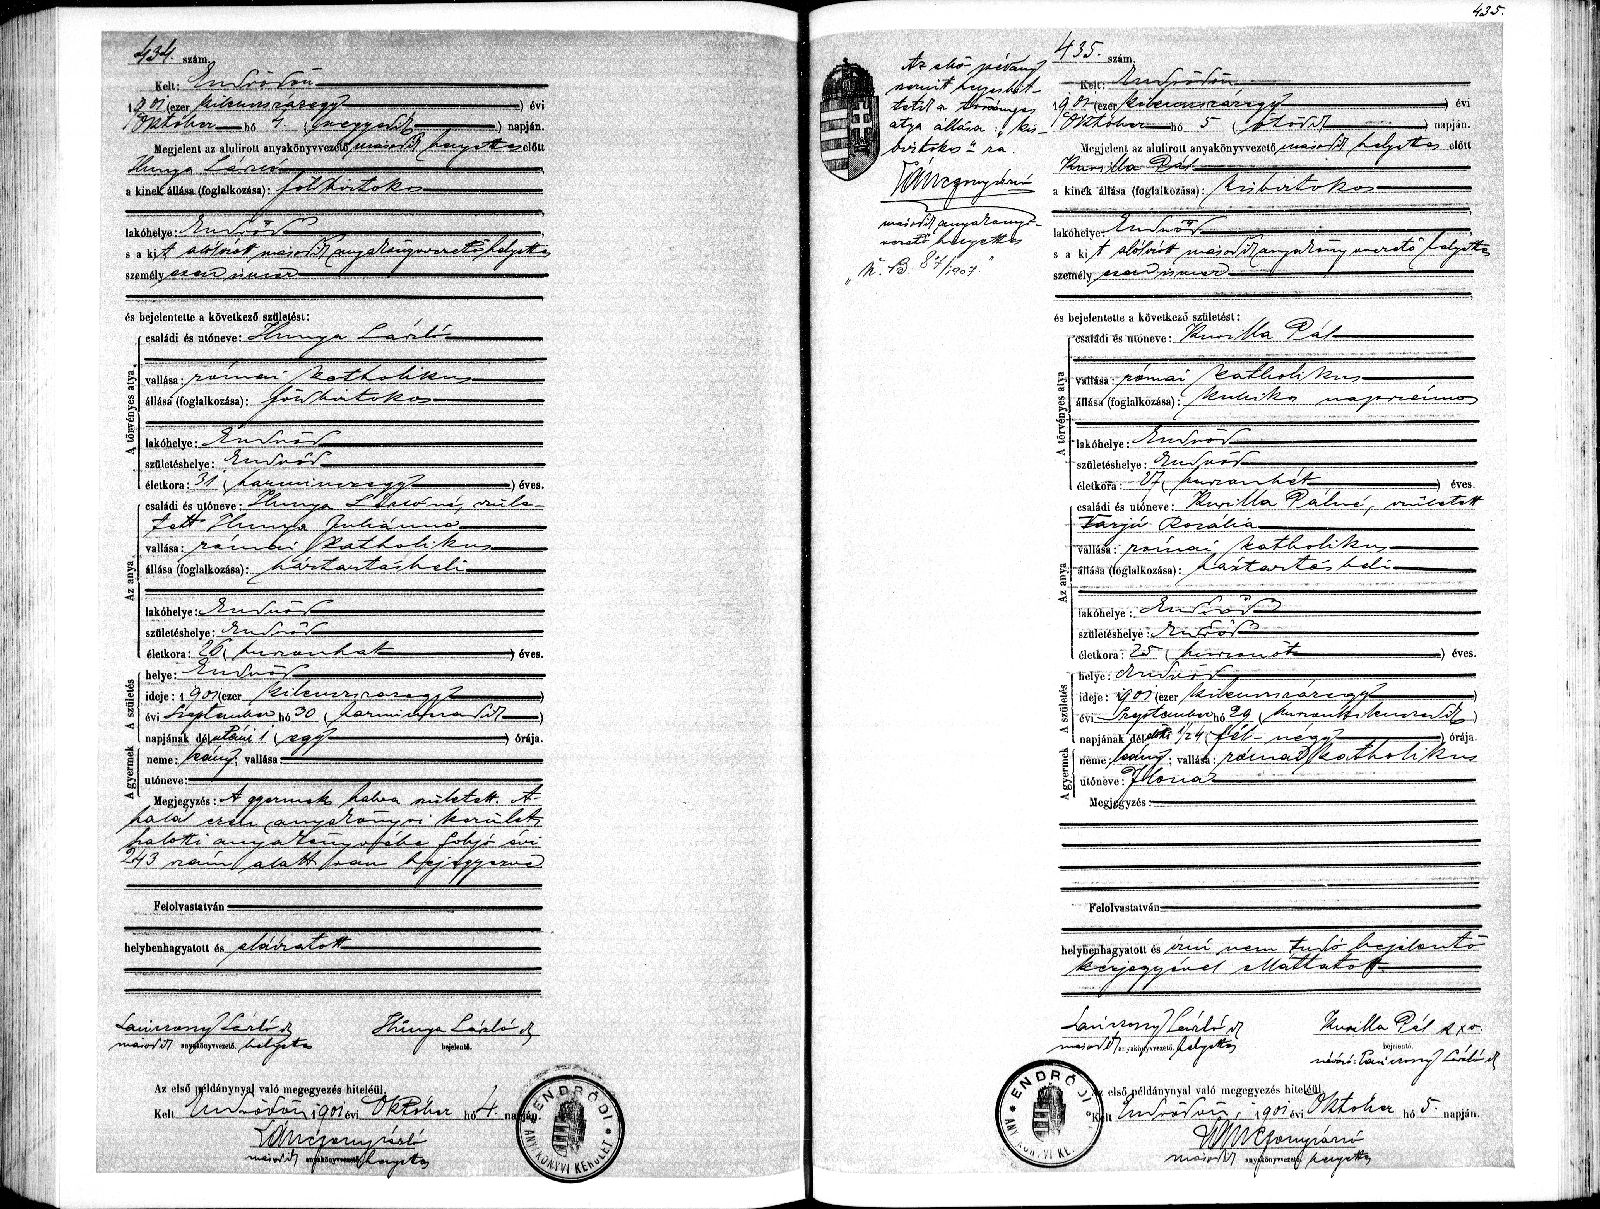 434. szám.
Kelt: Endrődön
1901 (ezer kilenczszázegy) évi
Október hó 4 (negyedik) napján.
Megjelent az alulirott anyakönyvvezető második helyettes előtt
Hunya László
a kinek állása (foglalkozása): földbirtokos
lakóhelye: Endrőd
s a kit alólirott második anyakönyvvezető helyettes
személyesen ismer
és bejelentette a következő születést:
A törvényes atya
családi és utóneve: Hunya László
vallása: római katholikus
állása (foglalkozása): földbirtokos
lakóhelye: Endrőd
születéshelye: Endrőd
életkora: 31 (harminczegy) éves.
Az anya
családi és utóneve: Hunya Lászlóné, szüle-
tett Hunya Juliánna
vallása: római katholikus
állása (foglalkozása): háztartásbeli
lakóhelye: Endrőd
születéshelye: Endrőd
életkora: 26 (huszonhat) éves.
A születés
helye: Endrőd
ideje: 1901 (ezer kilenczszázegy)
évi Szeptember hó 30 (harminczadik)
napjának délutáni 1 (egy) órája.
A gyermek
neme: leány; vallása
utóneve:
Megjegyzés: A gyermek halva született. A
halál ezen anyakönyvi kerület
halotti anyakönyvébe folyó évi
243 szám alatt van bejegyezve
Felolvastatván
helybenhagyatott és aláiratott
Lánczony László sk
második anyakönyvvezető. helyettes
Hunya László sk
bejelentő.
Az első példánynyal való megegyezés hiteléül.
Kelt Endrődön, 1901 évi Október hó 4. napján.
második anyakönyvvezető helyettes
ENDRŐDI ANYAKÖNYVI KERÜLET
435.
Az első példány
szerint helyesbit-
tetik a törvényes
atya állása: "kis-
birtokos"-ra.
második anyakönyv-
vezető helyettes
435. szám.
Kelt: Endrődön
1901 (ezer kilenczszázegy) évi
Október hó 5 (ötödik) napján.
Megjelent az alulirott anyakönyvvezető második helyettes előtt
Kurilla Pál
a kinek állása (foglalkozása): kisbirtokos
lakóhelye: Endrőd
s a kit alólirott második anyakönyvvezető helyettes
személyesen ismer
és bejelentette a következő születést:
A törvényes atya
családi és utóneve: Kurilla Pál
vallása: római katholikus
állása (foglalkozása): kubikos napszámos
lakóhelye: Endrőd
születéshelye: Endrőd
életkora: 27 (huszonhét) éves.
Az anya
családi és utóneve: Kurilla Pálné, született
Varjú Rozália
vallása: római katholikus
állása (foglalkozása): háztartásbeli
lakóhelye: Endrőd
születéshelye: Endrőd
életkora: 25 (huszonöt) éves.
A születés
helye: Endrőd
ideje: 1901 (ezer kilenczszázegy)
évi Szeptember hó 29 (huszonkilenczedik)
napjának délelőtti 1/2 4 (fél-négy) órája.
A gyermek
neme: leány; vallása: római katholikus
utóneve: Ilona
Megjegyzés:
Felolvastatván
helybenhagyatott és irni nem tudó bejelentő
kézjegyével elláttatott
Lánczony László sk
második anyakönyvvezető. helyettes
Kurilla Pál s. x. v.
bejelentő.
névíró: Lánczony László sk
Az első példánynyal való megegyezés hiteléül.
Kelt Endrődön, 1901 évi Október hó 5. napján.
második anyakönyvvezető. helyettes
ENDRŐDI